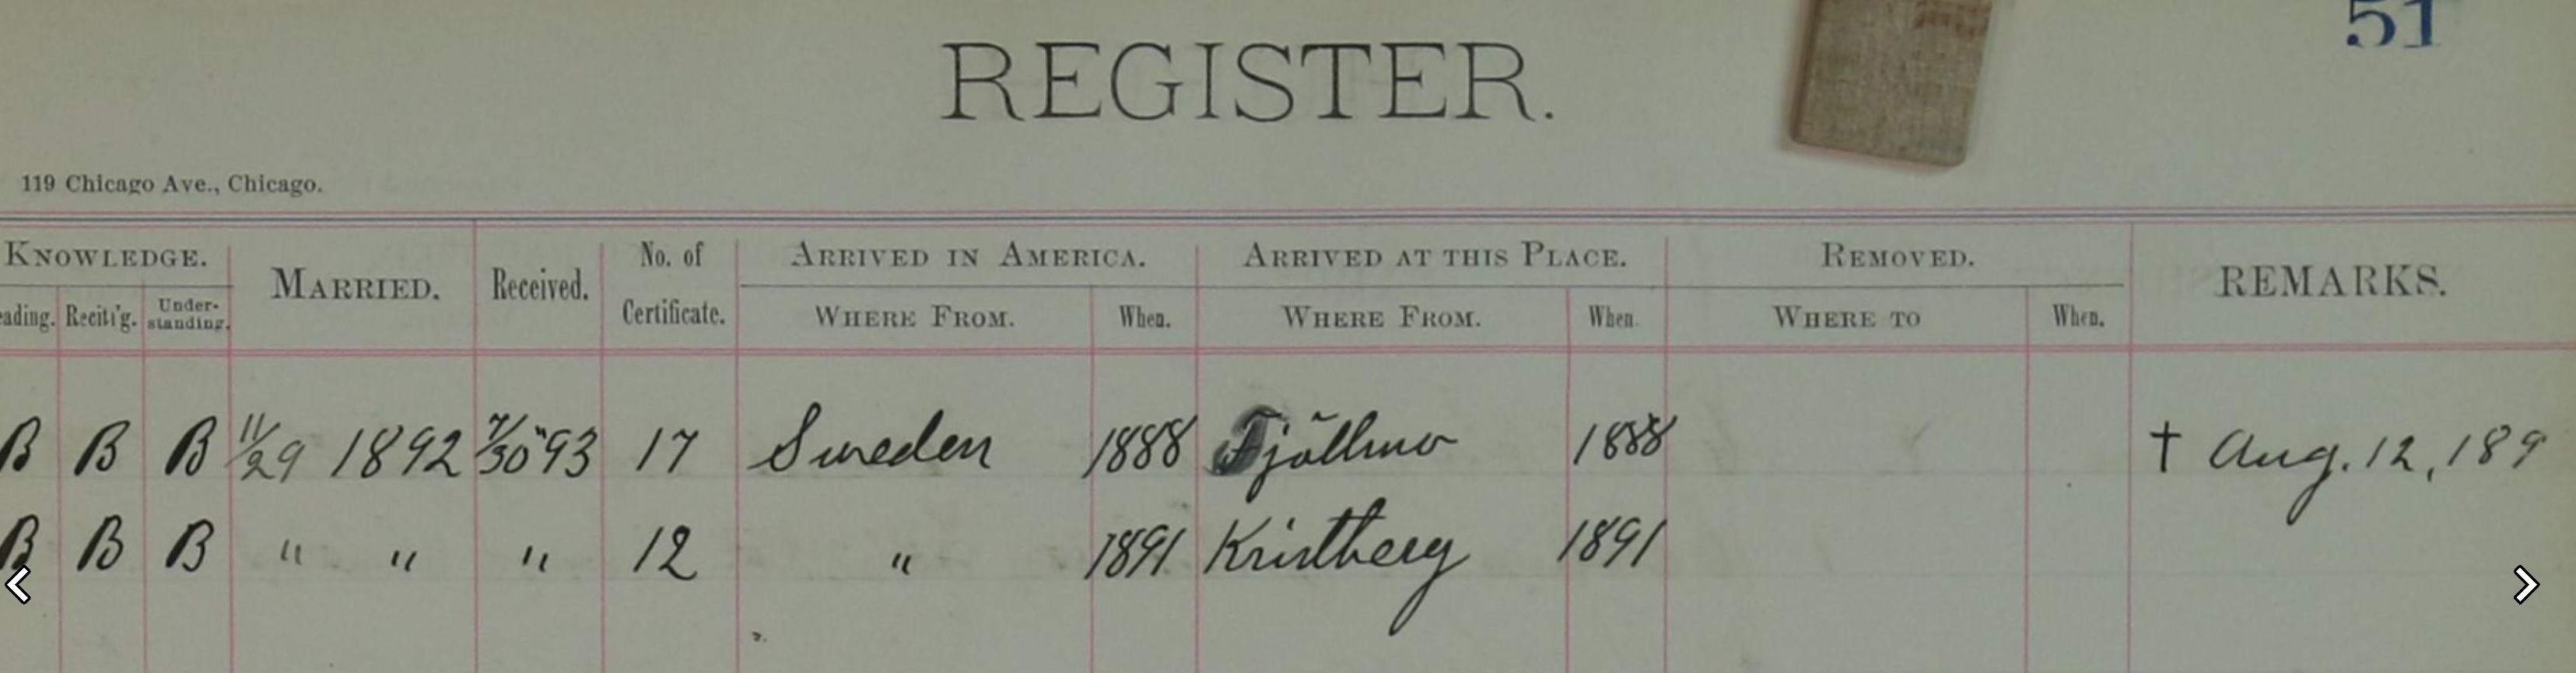 51
REGISTER.
119 Chicago Ave., Chicago.
KNOWLEDGE. MARRIED. Received. No. of Certificate. ARRIVED IN AMERICA. ARRIVED AT THIS PLACE. REMOVED. REMARKS.
eading. Reciti'g. Under-standing. WHERE FROM. When. WHERE FROM. When. WHERE TO When.
B B B 11/29 1892 7/30 "93 17 Sweden 1888 Fjällmo 1888 † Aug. 12, 189
B B B " " " 12 " 1891 Kristberg 1891